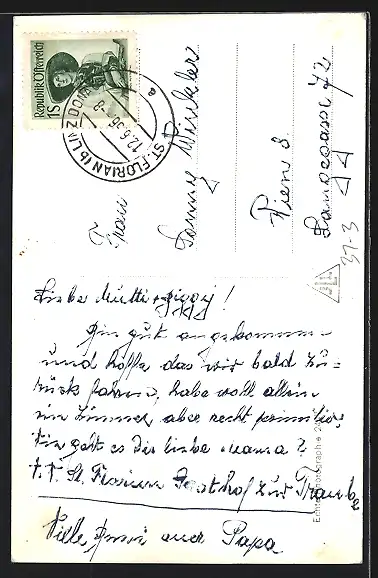 Republik Österreich
1S
ST. FLORIAN (b. LINZ DONAU)
12.6.56-8
a
Frau
Winkler
Wien 8.
Langegasse 72
31-3
Liebe Mutti
Bin gut angekommen
und hoffe, das wir bald zu-
rück fahren, habe wohl allein
ein Zimmer, aber recht primitiv,
Wie geht es Dir liebe Mama?
St. Florian Gasthof zur Traube
Viele euer Papa
Echte Photographie